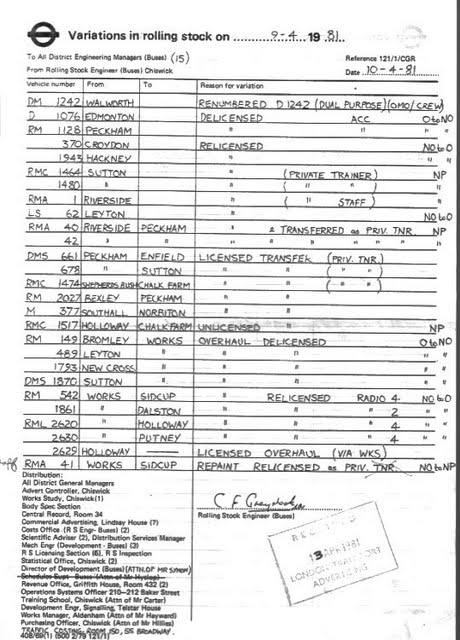 Variations in rolling stock on 9-4 19 81
To All District Engineering Managers (Buses) (15)
From Rolling Stock Engineer (Buses) Chiswick
Reference 121/1/CGR
Date 10-4-81
Vehicle number From To Reason for variation
DM 1242 WALWORTH RENUMBERED D1242 (DUAL PURPOSE)(OMO/CREW)
D 1076 EDMONTON DELICENSED ACC O to NO
RM 1128 PECKHAM " " "
370 CROYDON RELICENSED NO to O
1943 HACKNEY " " "
RMC 1464 SUTTON " (PRIVATE TRAINER) NP
1480 " " ( " " )
RMA 1 RIVERSIDE " ( " STAFF)
LS 62 LEYTON " NO to O
RMA 40 RIVERSIDE PECKHAM " & TRANSFERRED as PRIV. TNR. NP
42 " " " " " " " "
DMS 661 PECKHAM ENFIELD LICENSED TRANSFER (PRIV. TNR.)
678 " SUTTON " " ( " " )
RMC 1474 SHEPHERDS BUSH CHALK FARM " " ( " " )
RM 2027 BEXLEY PECKHAM " "
M 377 SOUTHALL NORBITON " "
RMC 1517 HOLLOWAY CHALK FARM UNLICENSED " NP
RM 149 BROMLEY WORKS OVERHAUL DELICENSED O to NO
489 LEYTON " " " "
1793 NEW CROSS " " " "
DMS 1870 SUTTON " " "
RM 542 WORKS SIDCUP " RELICENSED RADIO 4 NO to O
1861 " DALSTON " " 2 "
RML 2620 " HOLLOWAY " " 4 "
2630 " PUTNEY " " 4 "
2629 HOLLOWAY — LICENSED OVERHAUL (VIA WKS)
RMA 41 WORKS SIDCUP REPAINT RELICENSED as PRIV. TNR. NO to NP
Distribution:
All District General Managers
Advert Controller, Chiswick
Works Study, Chiswick (1)
Body Spec Section
Central Record, Room 34
Commercial Advertising, Lindsay House (7)
Costs Office (R S Engr- Buses) (2)
Scientific Adviser (2), Distribution Services Manager
Mech Engr (Development - Buses) (3)
R S Licensing Section (6), R S Inspection
Statistical Office, Chiswick (2)
Director of Development (Buses) (ATTN. OF MR
Schedules Supt - Buses (Attn of Mr Hyslop)
Revenue Office, Griffith House, Room 432 (2)
Operations Systems Officer 210-212 Baker Street
Training School, Chiswick (Attn of Mr Carter)
Development Engr, Signalling, Telstar House
Works Manager, Aldenham (Attn of Mr Hayward)
Purchasing Officer, Chiswick (Attn of Mr Hillies)
TRAFFIC COSTING, ROOM 150, 55 BROADWAY.
408/69(1) (500 2/79 121/1)
Rolling Stock Engineer (Buses)
13 APR 1981
LONDON TRANSPORT
ADVERTISING